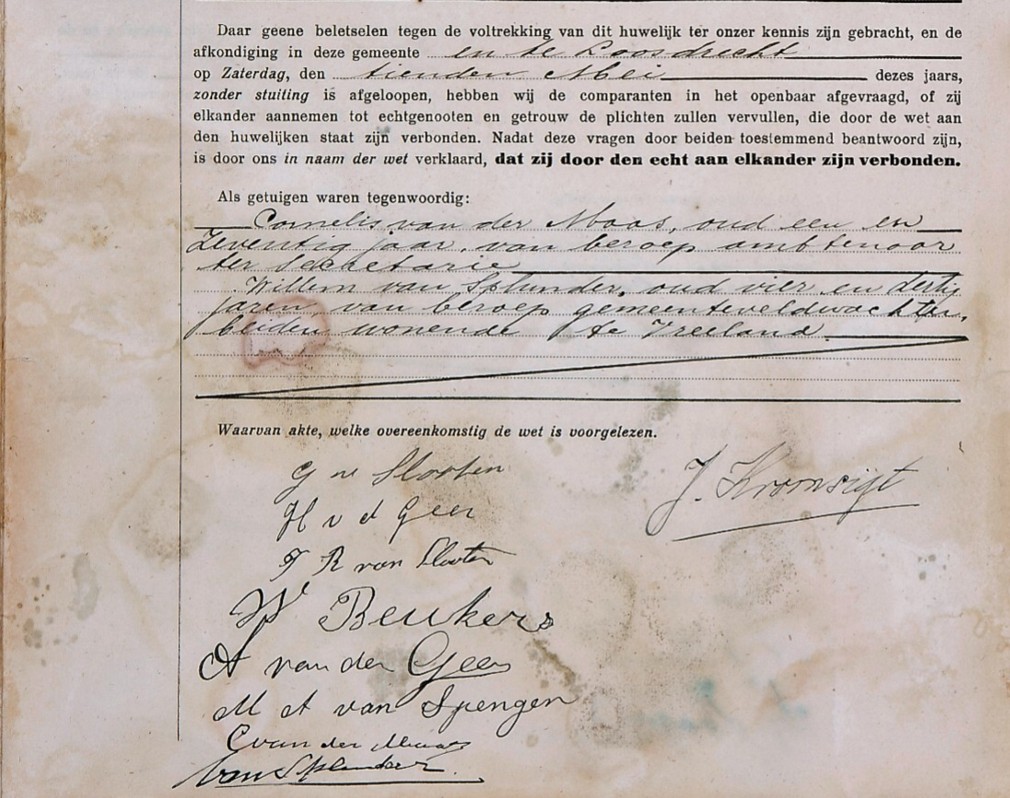 Daar geene beletselen tegen de voltrekking van dit huwelijk ter onzer kennis zijn gebracht, en de
afkondiging in deze gemeente en te Loosdrecht
op Zaterdag, den tienden Mei dezes jaars,
zonder stuiting is afgeloopen, hebben wij de comparanten in het openbaar afgevraagd, of zij
elkander aannemen tot echtgenooten en getrouw de plichten zullen vervullen, die door de wet aan
den huwelijken staat zijn verbonden. Nadat deze vragen door beiden toestemmend beantwoord zijn,
is door ons in naam der wet verklaard, dat zij door den echt aan elkander zijn verbonden.
Als getuigen waren tegenwoordig:
Cornelis van der Maas, oud een en
Zeventig jaar, van beroep ambtenaar
ter secretarie
Willem van Splunder, oud vier en dertig
jaren, van beroep gemeenteveldwachter,
beiden wonende te Vreeland
Waarvan akte, welke overeenkomstig de wet is voorgelezen.
G v Slooten
J. Kromsigt
H v d Geer
R van Slooten
W Beukers
A van der Geer
M A van Spengen
C van der Maas
van Splunder